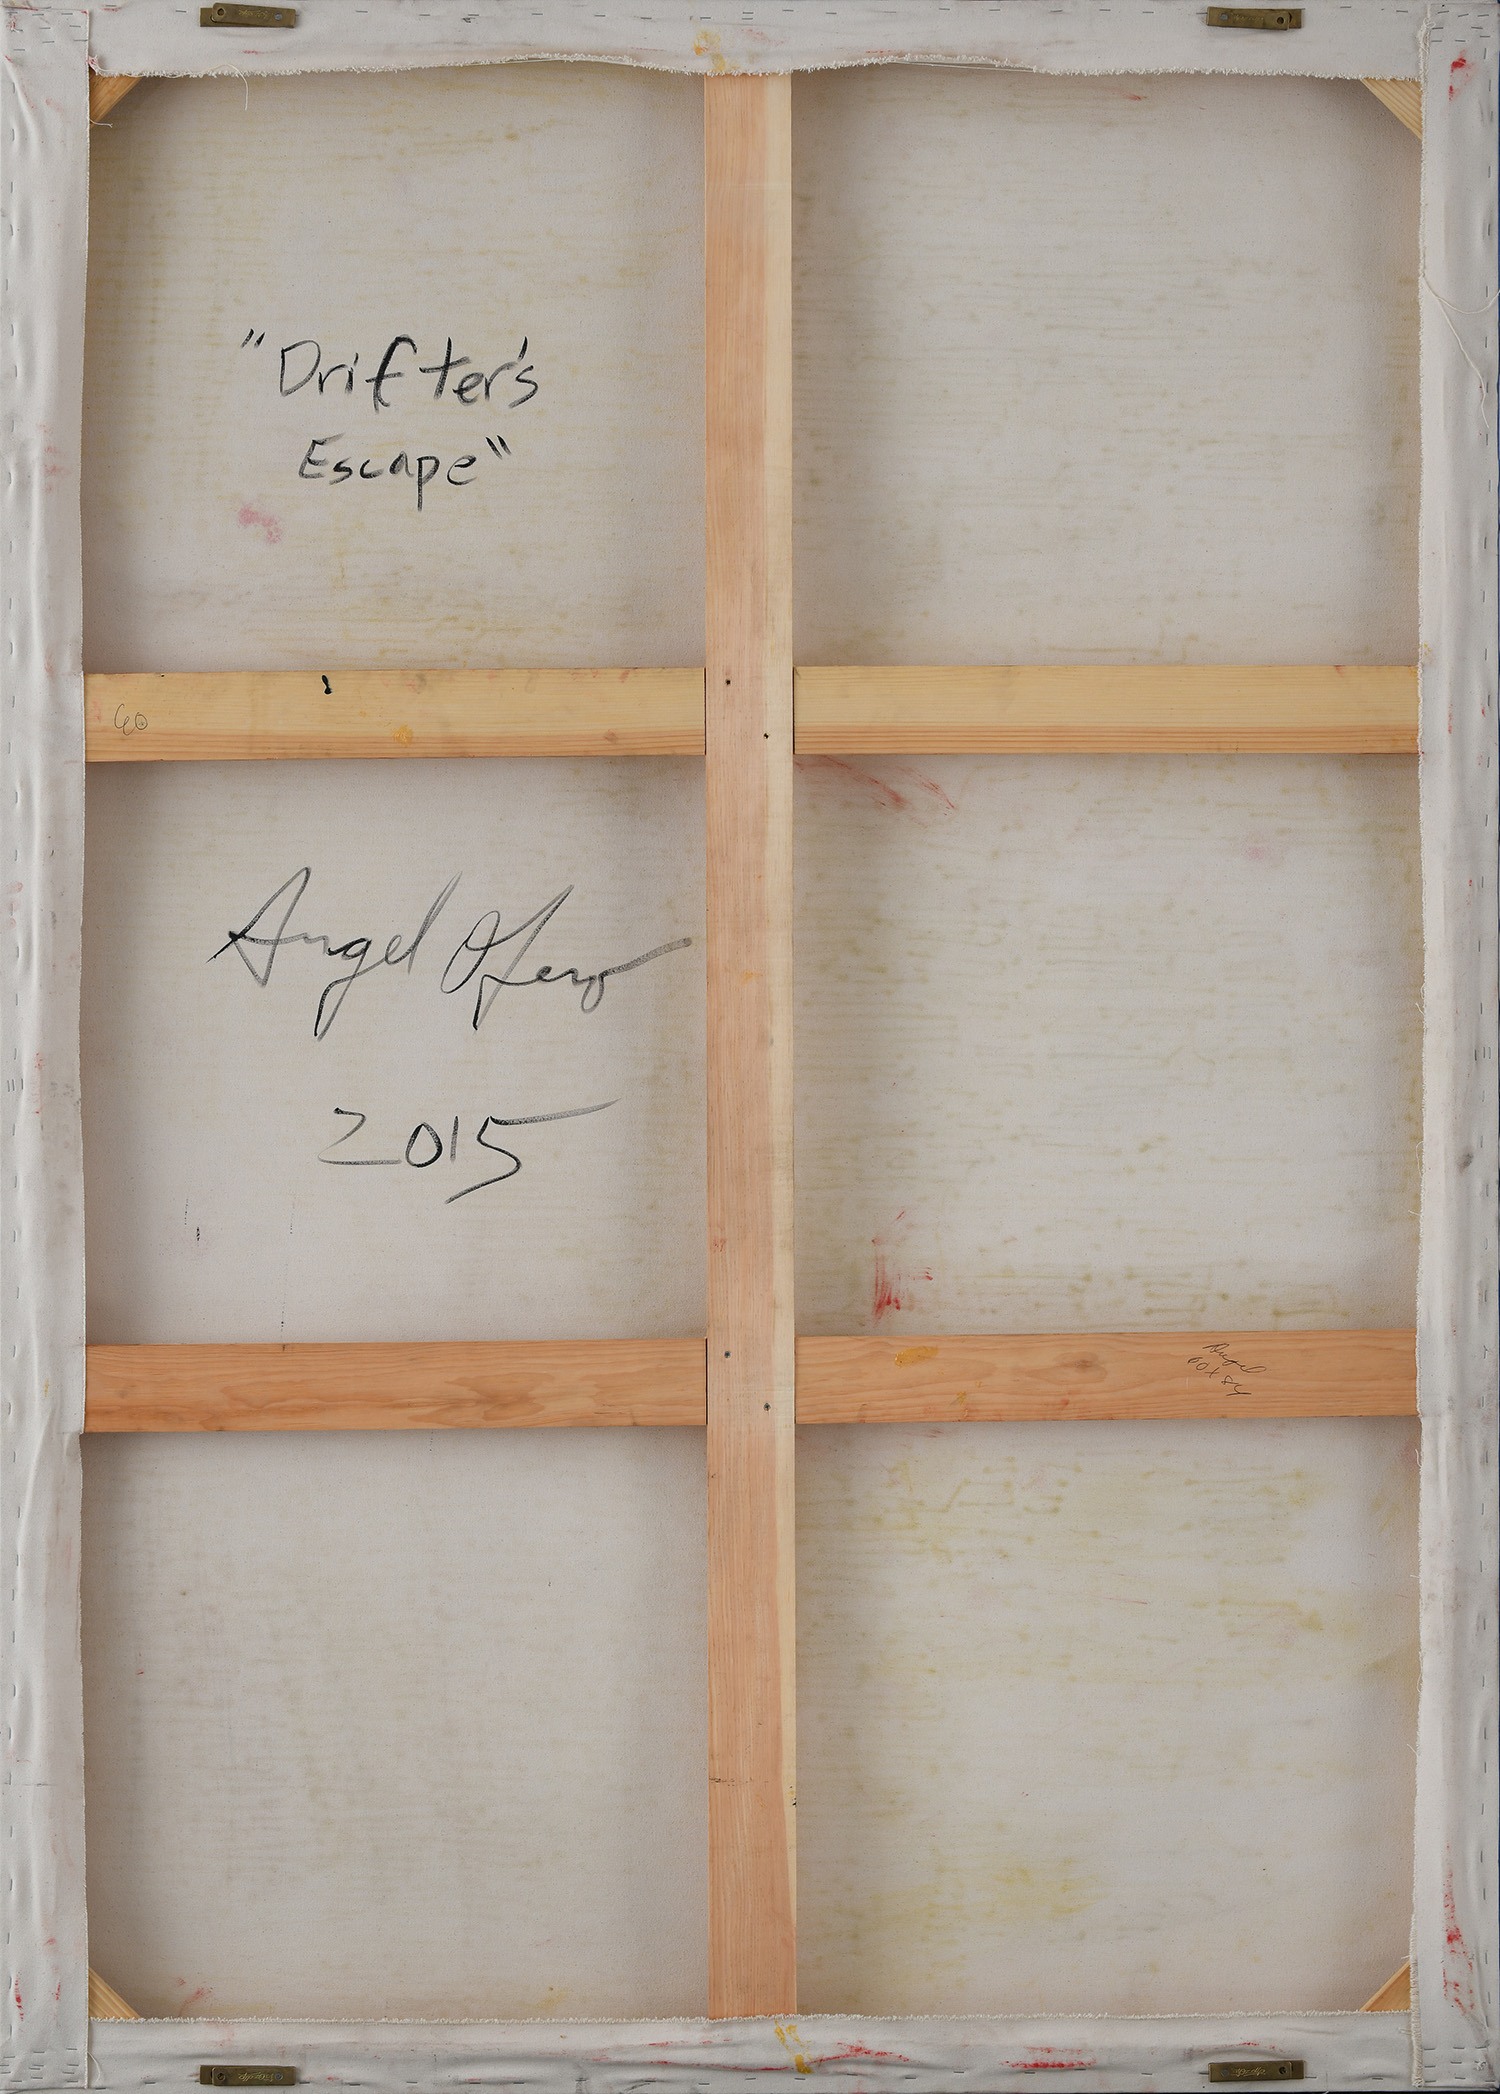 "Drifter's
Escape"
60
Angel Otero
2015
Angel
60x84